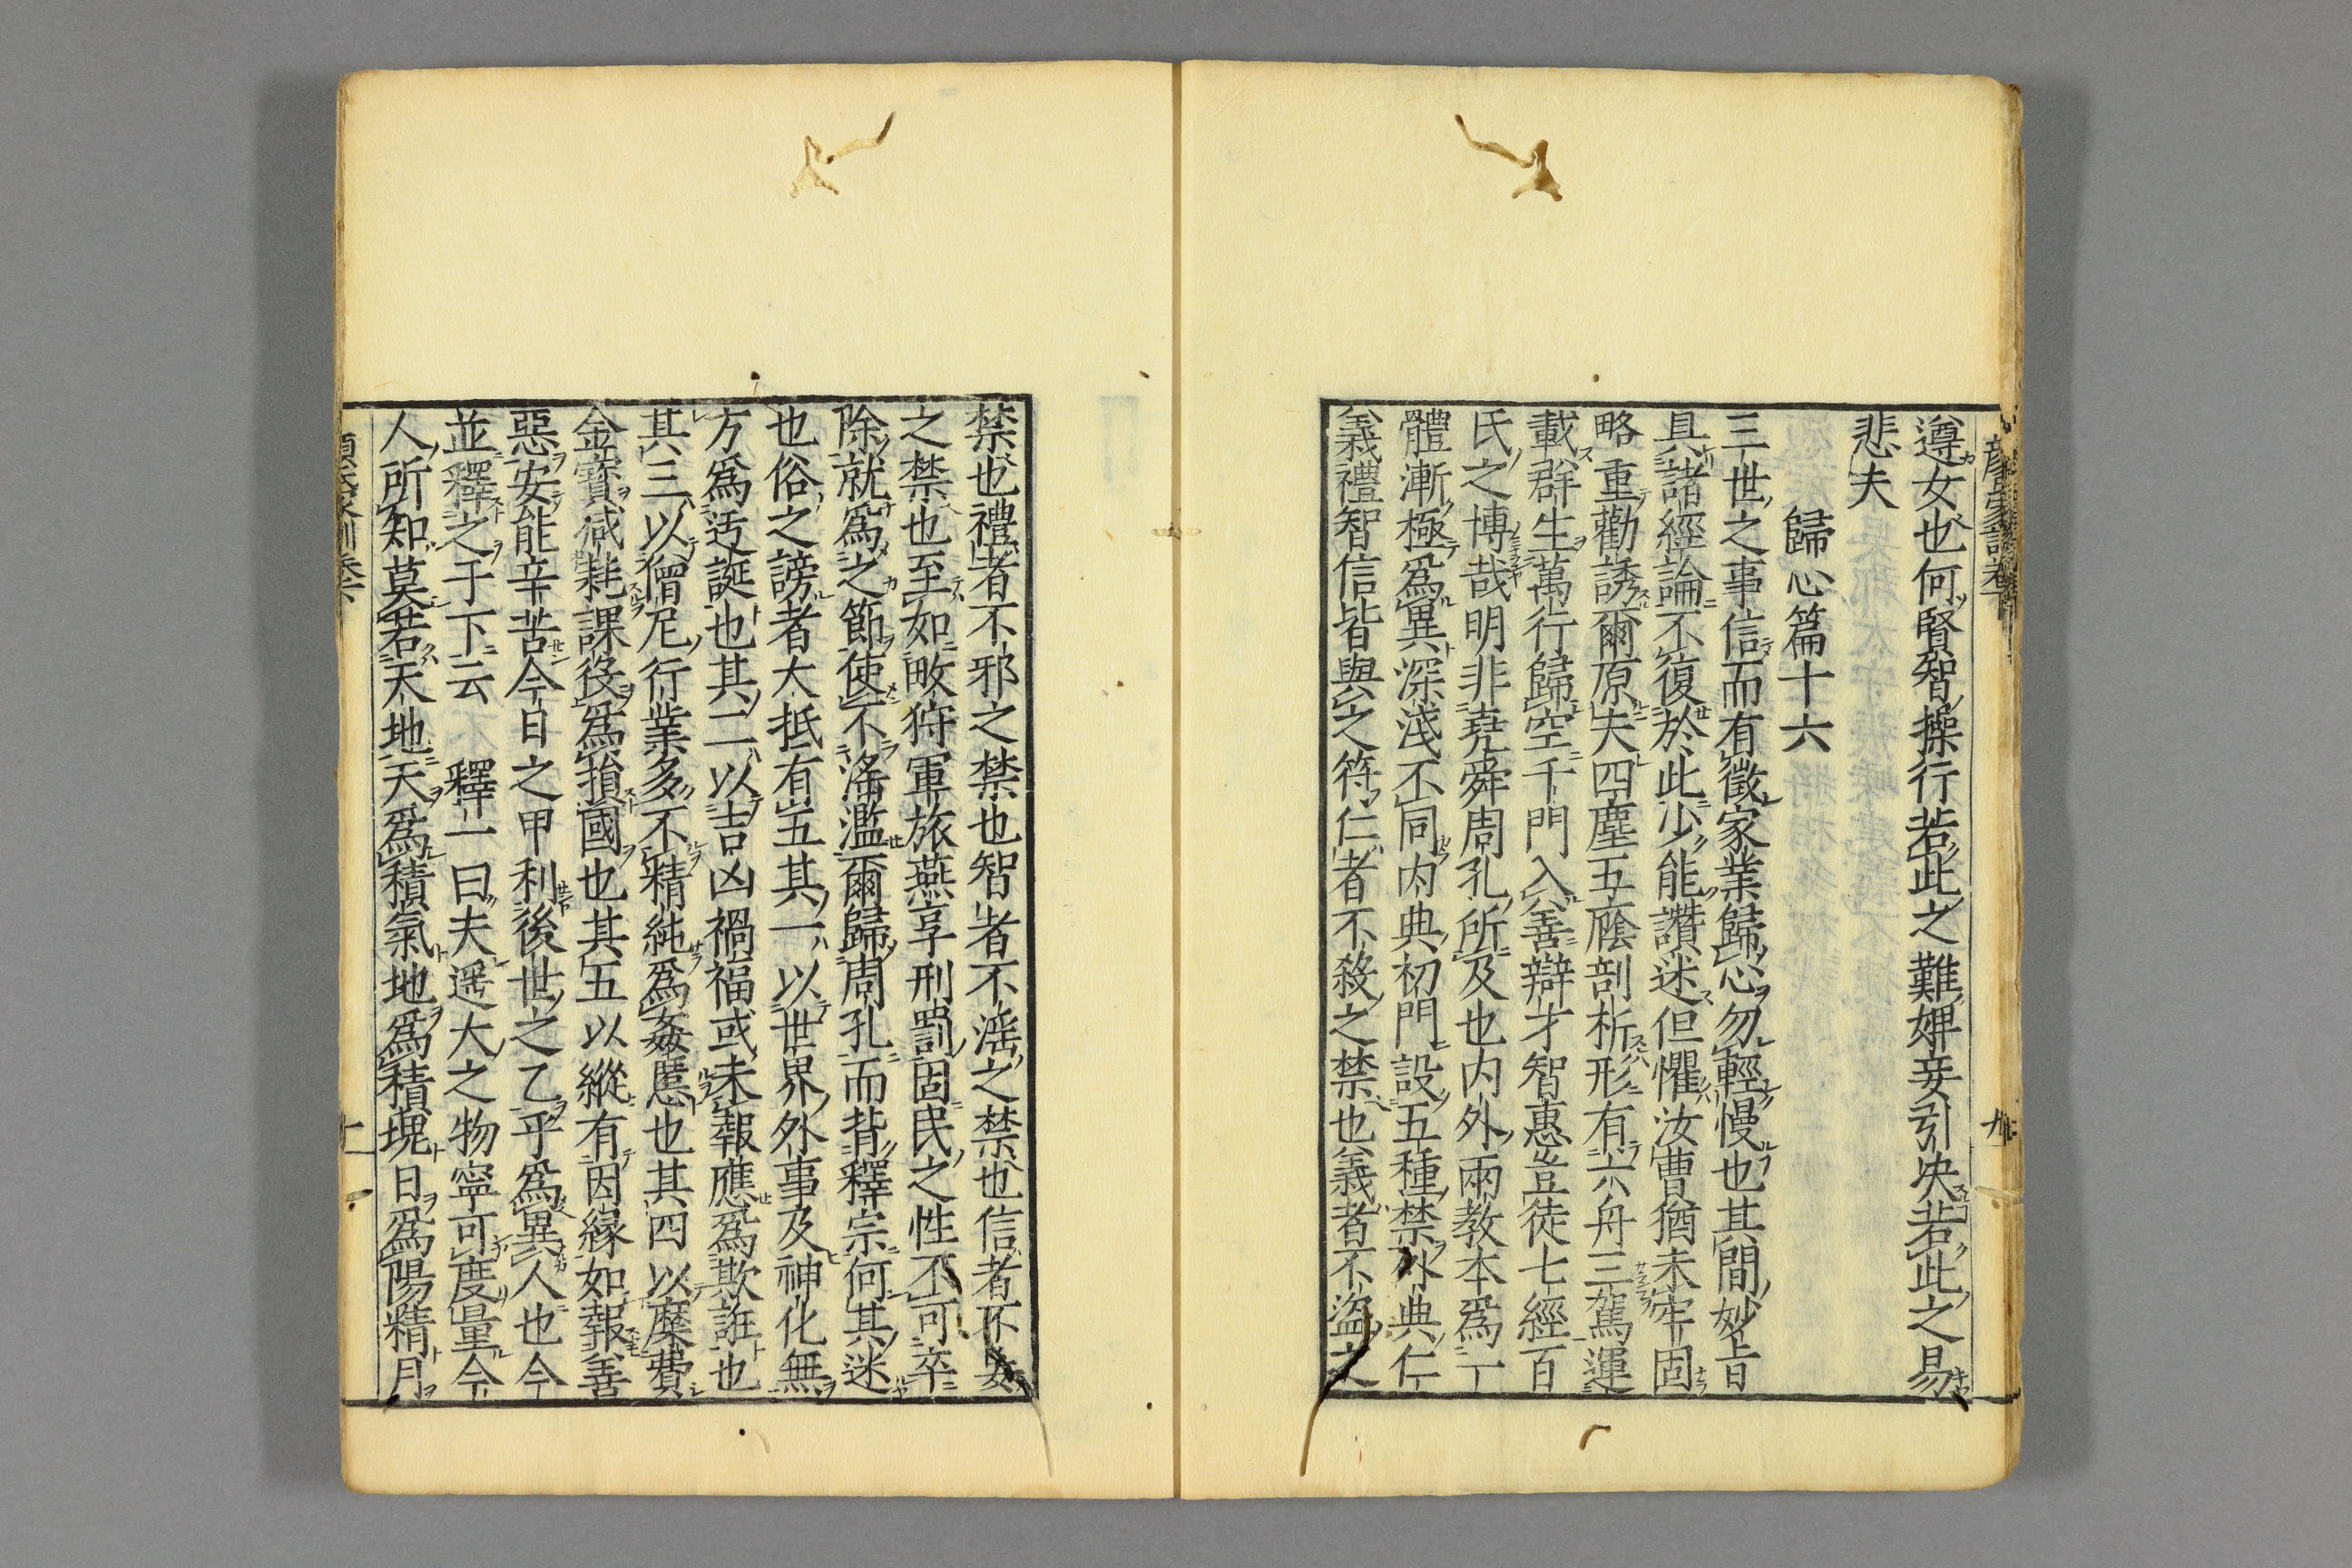 遵女也何賢智操行若此之難婢妾引决若此之易
悲夫
歸心篇十六
三世之事信而有徵家業歸心勿輕慢也其間妙旨
具諸經論不復於此少能讚述但懼汝曹猶未牢固
略重勸誘爾原夫四塵五廕剖析形有六舟三駕運
載群生萬行歸空千門入善辯才智惠豈徒七經百
氏之博哉明非堯舜周孔所及也内外兩教本爲一
體漸極爲異深淺不同内典初門設五種禁外典仁
義禮智信皆與之符仁者不殺之禁也義者不盜之
禁也禮者不邪之禁也智者不淫之禁也信者不妄
之禁也至如畋狩軍旅燕享刑罰固民之性不可卒
除就爲之節使不淫濫爾歸周孔而背釋宗何其迷
也俗之謗者大抵有五其一以世界外事及神化無
方爲迃誕也其二以吉凶禍福或未報應爲欺誑也
其三以僧尼行業多不精純爲姦慝也其四以糜費
金寶減耗課役爲損國也其五以縱有因緣如報善
惡安能辛苦今日之甲利後世之乙乎爲異人也今
並釋之于下云　釋一曰夫遥大之物寧可度量今
人所知莫若天地天爲積氣地爲積塊日爲陽精月